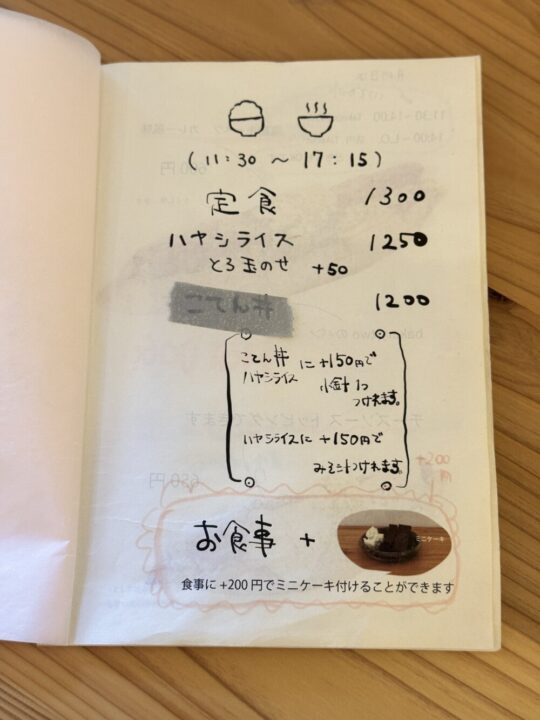 (11:30 ～ 17:15)
定食 1300
ハヤシライス 1250
とろ玉のせ +50
こてん丼 1200
こてん丼
ハヤシライス に+150円で
小鉢1つ
つけれます。
ハヤシライスに+150円で
みそ汁つけれます
+200
円
お食事 +
ミニケーキ
食事に+200円でミニケーキ付けることができます